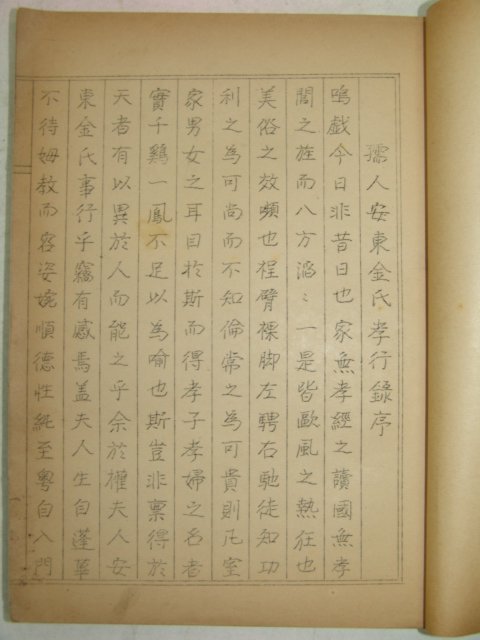 孺人安東金氏孝行錄序
嗚戲今日非昔日也家無孝經之讀國無孝
閭之旌而八方滔〻一是皆歐風之熱狂也
美俗之效嚬也裎臂裸脚左騁右馳徒知功
利之為可尚而不知倫常之為可貴則凡室
家男女之耳目於斯而得孝子孝婦之名者
實千鷄一鳳不足以為喻也斯豈非禀得於
天者有以異於人而能之乎余於權夫人安
東金氏事行乎竊有感焉盖夫人生自蓬蓽
不待姆敎而容姿婉順德性純至粤自入門